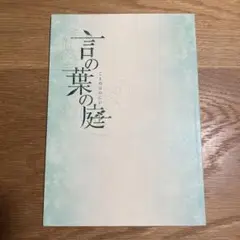 言の葉の庭